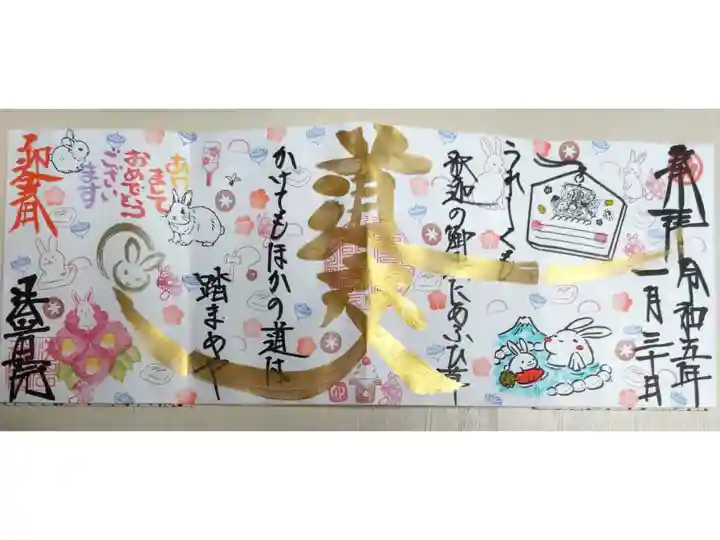 奉拝
令和五年
一月三十日
うれしくも
釈迦の御
あふひ草
かけてもほかの道は
踏まめや
あけ
まして
おめでとう
ござい
ます
迎春
卯